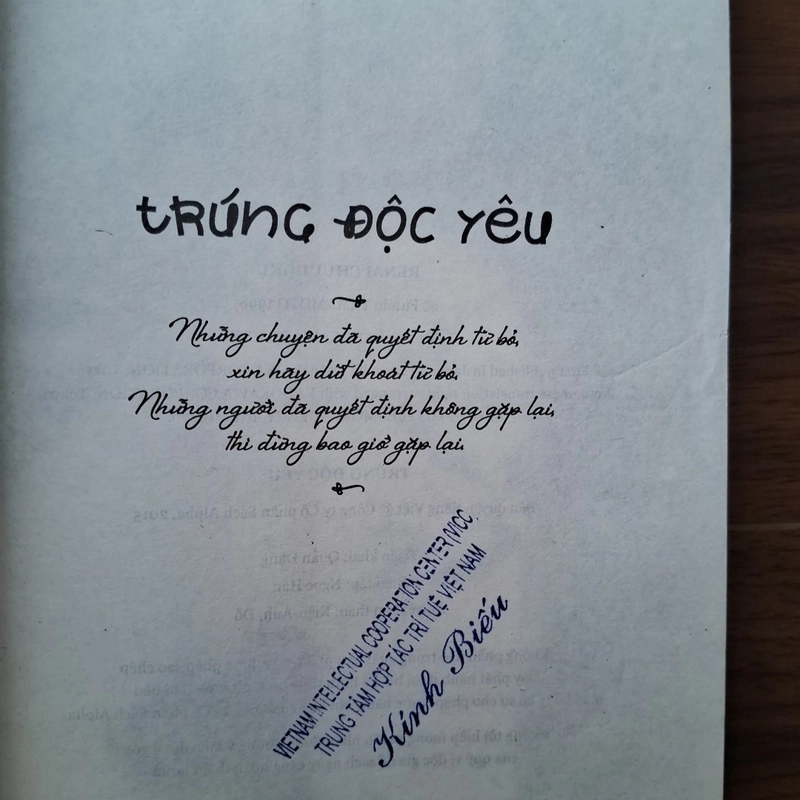 TRÚNG ĐỘC YÊU
Những chuyện đã quyết định từ bỏ,
xin hãy dứt khoát từ bỏ.
Những người đã quyết định không gặp lại,
thì đừng bao giờ gặp lại.
VIETNAM INTELLECTUAL COOPERATION CENTER (VICC)
TRUNG TÂM HỢP TÁC TRÍ TUỆ VIỆT NAM
Kính Biếu